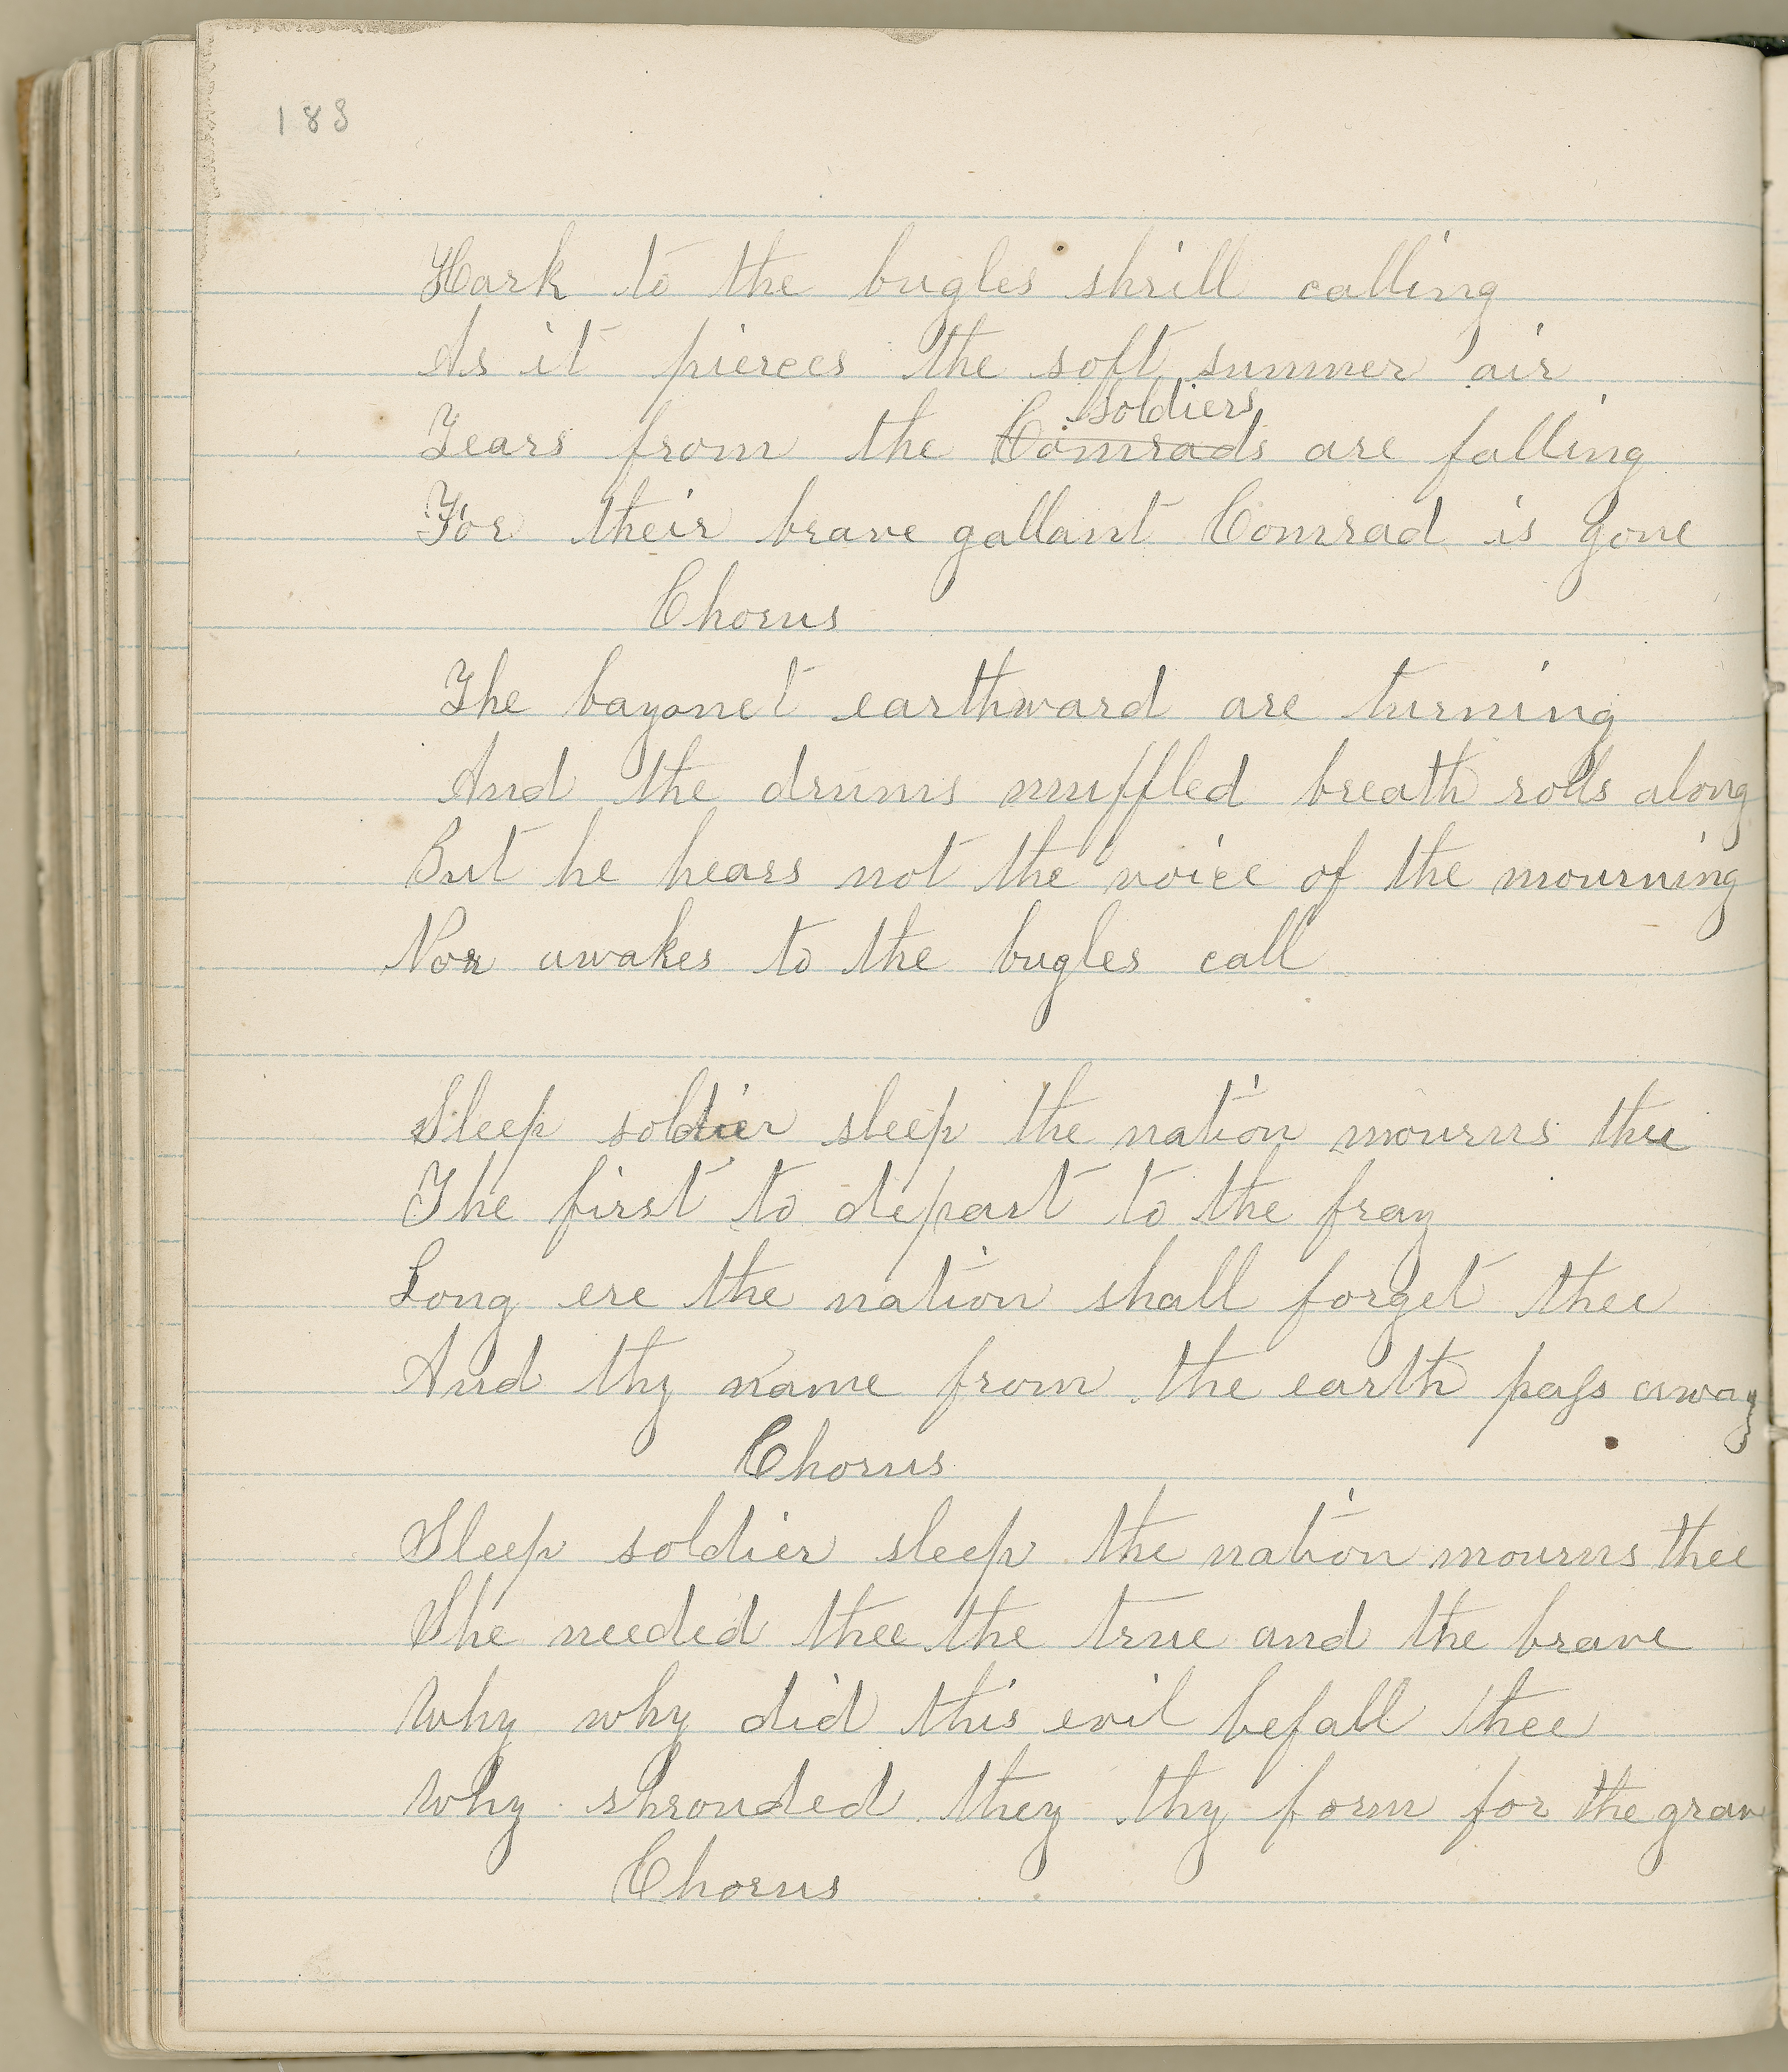 183
Hark to the bugles shrill calling
As it pierces the soft summer air
soldiers
Tears from the Comrads are falling
For their brave gallant Comrad is gone
Chorus
The bayonet earthward are turning
And the drums muffled breath rolls along
But he hears not the voice of the mourning
Nor awakes to the bugles call
Sleep soldier sleep the nation mourns thee
The first to depart to the fray
Long ere the nation shall forget thee
And thy name from the earth pass away
Chorus
Sleep soldier sleep the nation mourns thee
She needed thee the true and the brave
Why why did this evil befall thee
Why shrouded they thy form for the grav
Chorus